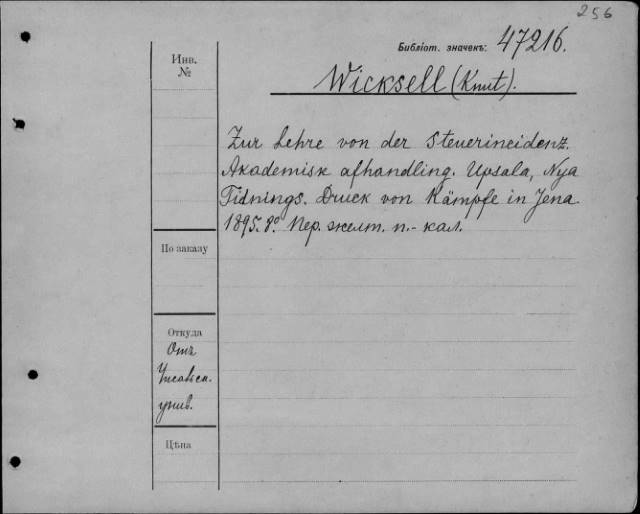 256
Библіот. значекъ: 47216.
Инв.
№
Wicksell (Knut).
Zur Lehre von der Steuerincidenz.
Akademisk afhandling. Upsala, Nya
Tidnings. Druck von Kämpfe in Jena
1895. 8º. Пер. желт. п.- кал.
По заказу
Откуда
Отъ
Упсальск.
унив.
Цѣна